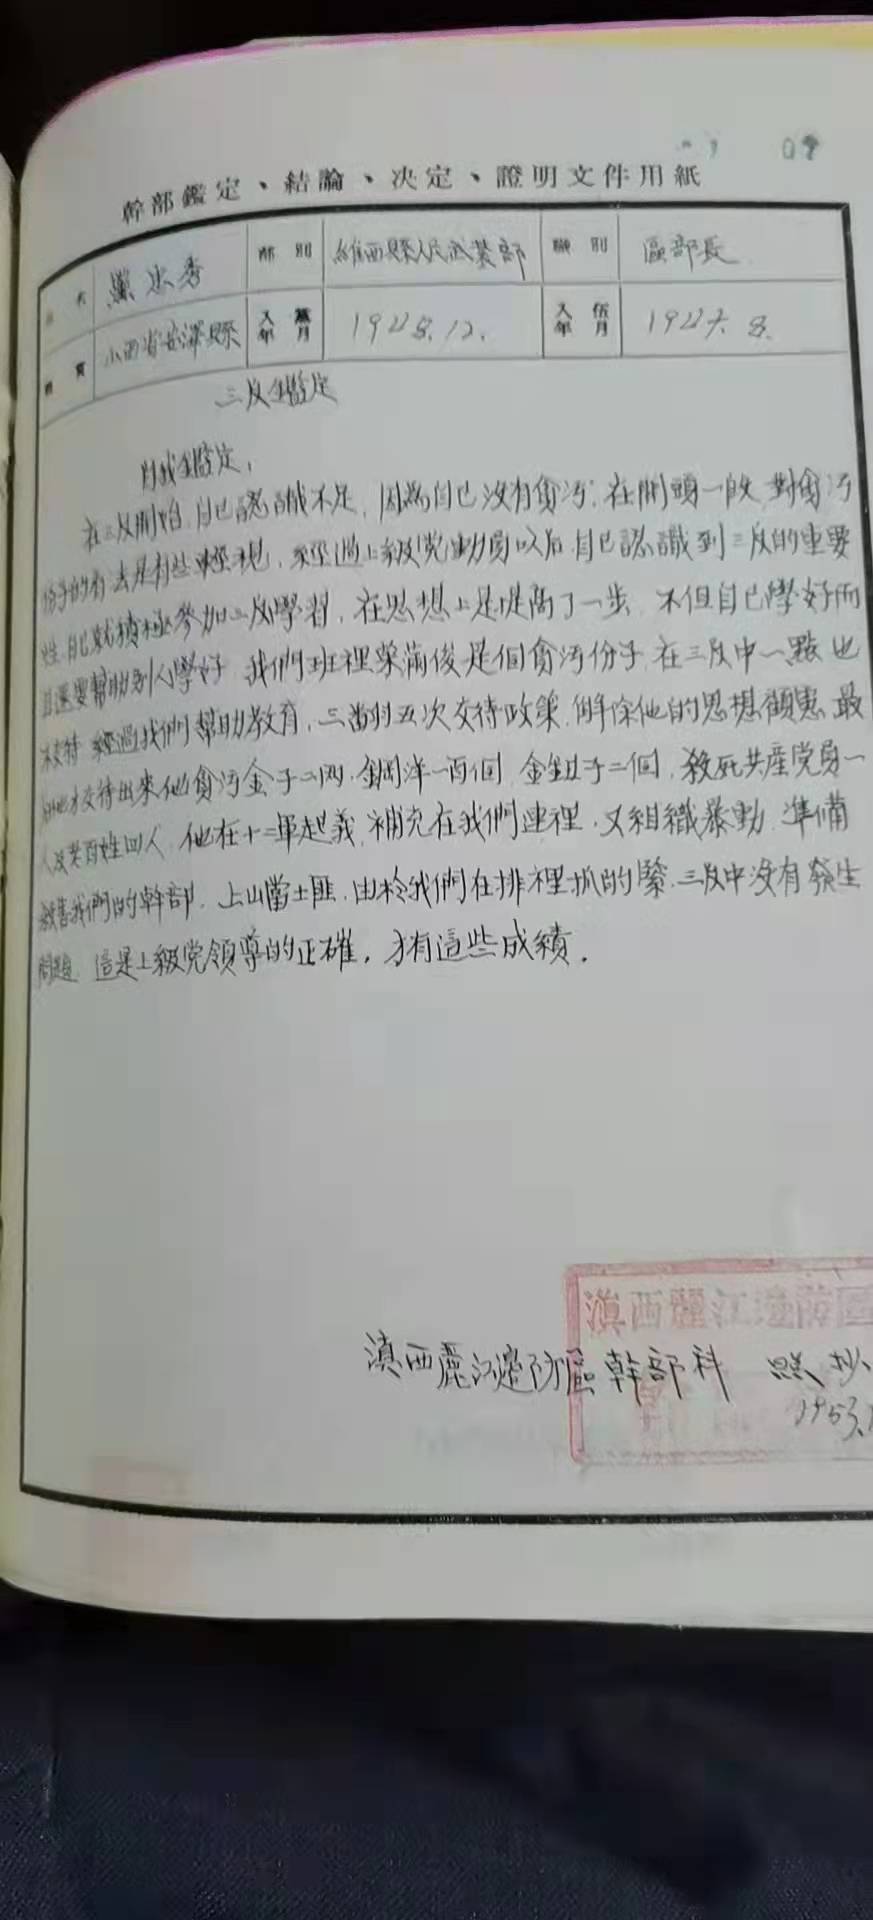 幹部鑑定、結論、决定、證明文件用紙
名 忠秀 部別 維西縣人民武裝部 職別 區部長
籍貫 山西省安澤縣 入黨年月 1948.12. 入伍年月 1947.8.
三反鑑定
自我鑑定,
在三反開始,自己認識不足,因為自己没有貪污,在開頭一段,對貪污
份子的看法是有些輕視,經過上級党動員以后,自已認識到三反的重要
性,自己就積極參加三反學習,在思想上是提高了一步,不但自已學好而
且還要幫助别人學好,我們班裡 滿俊是個貪污份子,在三反中一點也
不交待,經過我們幫助教育,三番打五次交待政策,解除他的思想顧慮,最
后他才交待出來他貪污金子二两,鋼洋一百個,金 子二個,殺死共產党員一
人及老百姓四人,他在十二軍起義,補充在我們連裡,又組織暴動,準備
殺害我們的幹部,上山當土匪,由於我們在排裡抓的緊,三反中没有發生
問題,這是上級党領導的正確,才有這些成績.
滇西麗江邊防區
滇西麗江邊防區幹部科 照抄
1953.